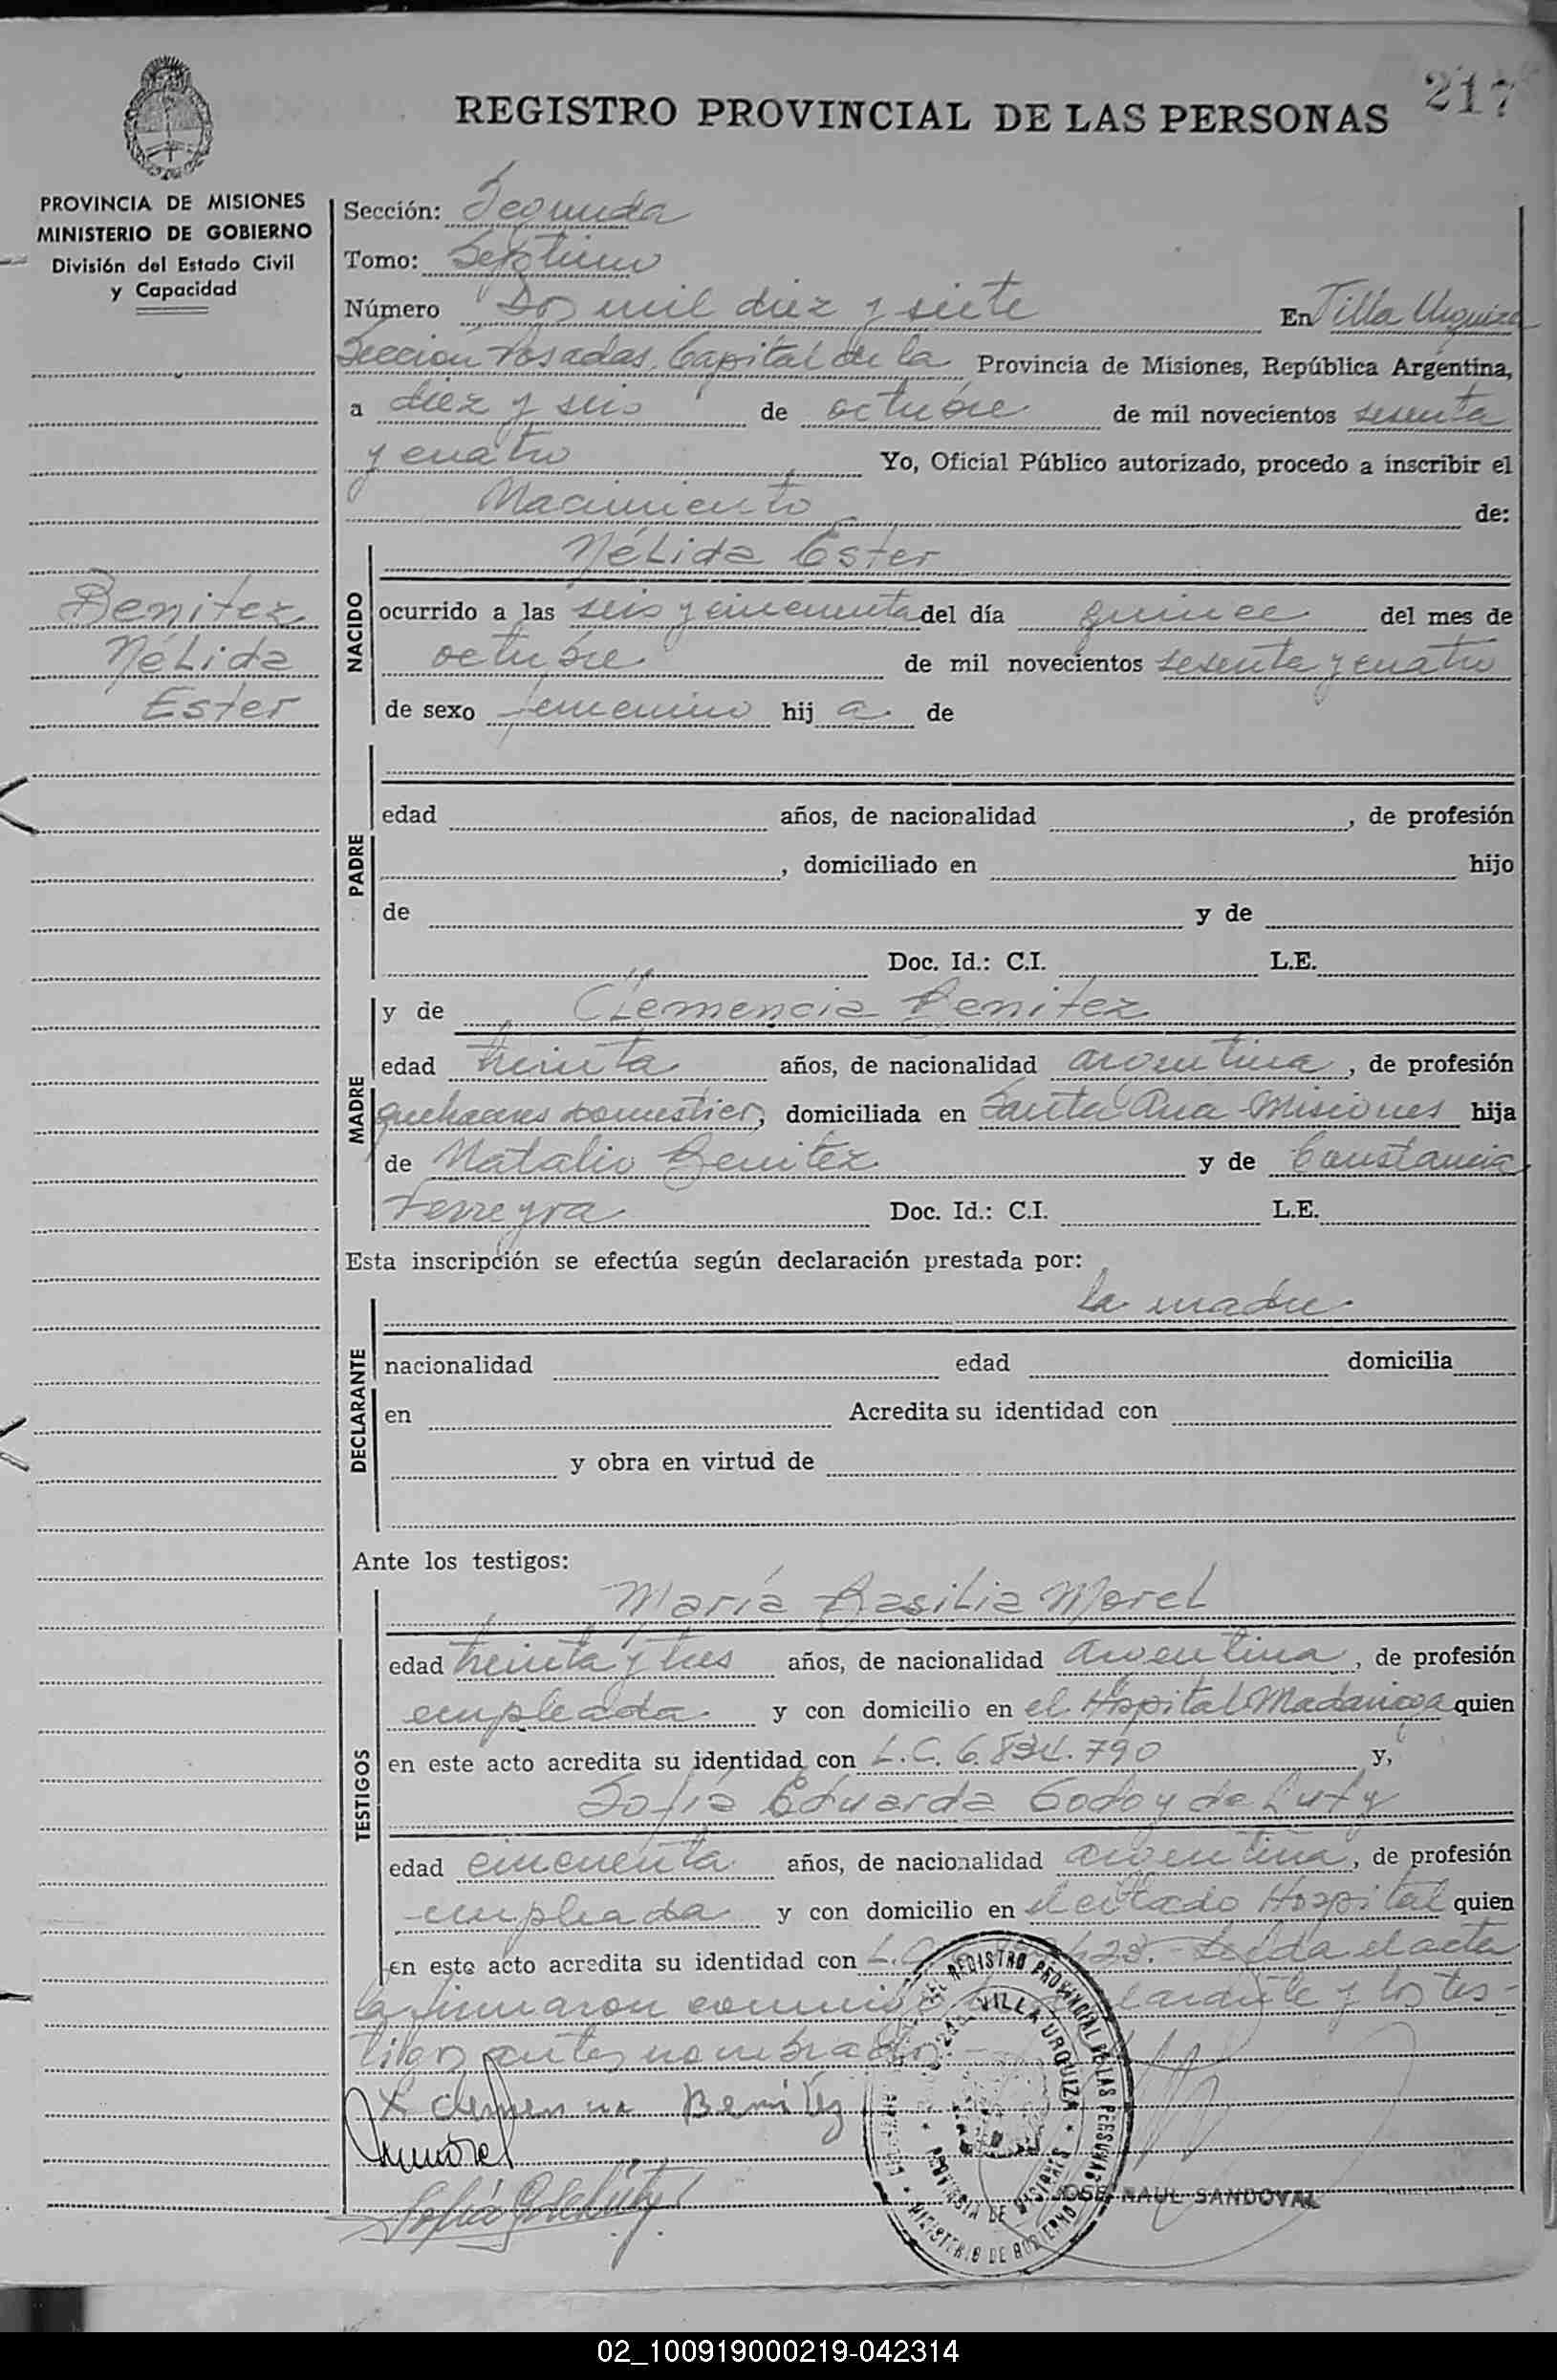 217
REGISTRO PROVINCIAL DE LAS PERSONAS
PROVINCIA DE MISIONES
MINISTERIO DE GOBIERNO
División del Estado Civil
y Capacidad
Sección: Segunda
Tomo: Septimo
Número Dos mil diez y siete En Villa Urquiza
Sección Posadas, Capital de la Provincia de Misiones, República Argentina,
a diez y seis de octubre de mil novecientos sesenta
y cuatro Yo, Oficial Público autorizado, procedo a inscribir el
Nacimiento de:
Nélida Ester
Benitez
Nélida
Ester
NACIDO
ocurrido a las seis y cincuenta del día quince del mes de
octubre de mil novecientos sesenta y cuatro
de sexo femenino hij a de
PADRE
edad años, de nacionalidad , de profesión
, domiciliado en hijo
de y de
Doc. Id.: C.I. L.E.
MADRE
y de Clemencia Benitez
edad treinta años, de nacionalidad argentina, de profesión
quehaceres domesticos, domiciliada en Santa Ana-Misiones hija
de Natalio Benitez y de Constancia
Ferreyra Doc. Id.: C.I. L.E.
Esta inscripción se efectúa según declaración prestada por:
la madre
DECLARANTE
nacionalidad edad domicilia
en Acredita su identidad con
y obra en virtud de
Ante los testigos:
TESTIGOS
María Basilia Morel
edad treinta y tres años, de nacionalidad argentina, de profesión
empleada y con domicilio en el Hospital Madariaga quien
en este acto acredita su identidad con L.C. 6.834.790 y,
Sofía Eduarda Godoy de Luty
edad cincuenta años, de nacionalidad argentina, de profesión
empleada y con domicilio en el citado Hospital quien
en este acto acredita su identidad con L.C. Leida el acta
la firmaron conmigo y los tes-
tigos antes nombrados.-
x Clemencia Benitez
JOSE RAUL SANDOVAL
REGISTRO PROVINCIAL DE LAS PERSONAS
VILLA URQUIZA
PROVINCIA DE MISIONES
MINISTERIO DE GOBIERNO
02_100919000219-042314